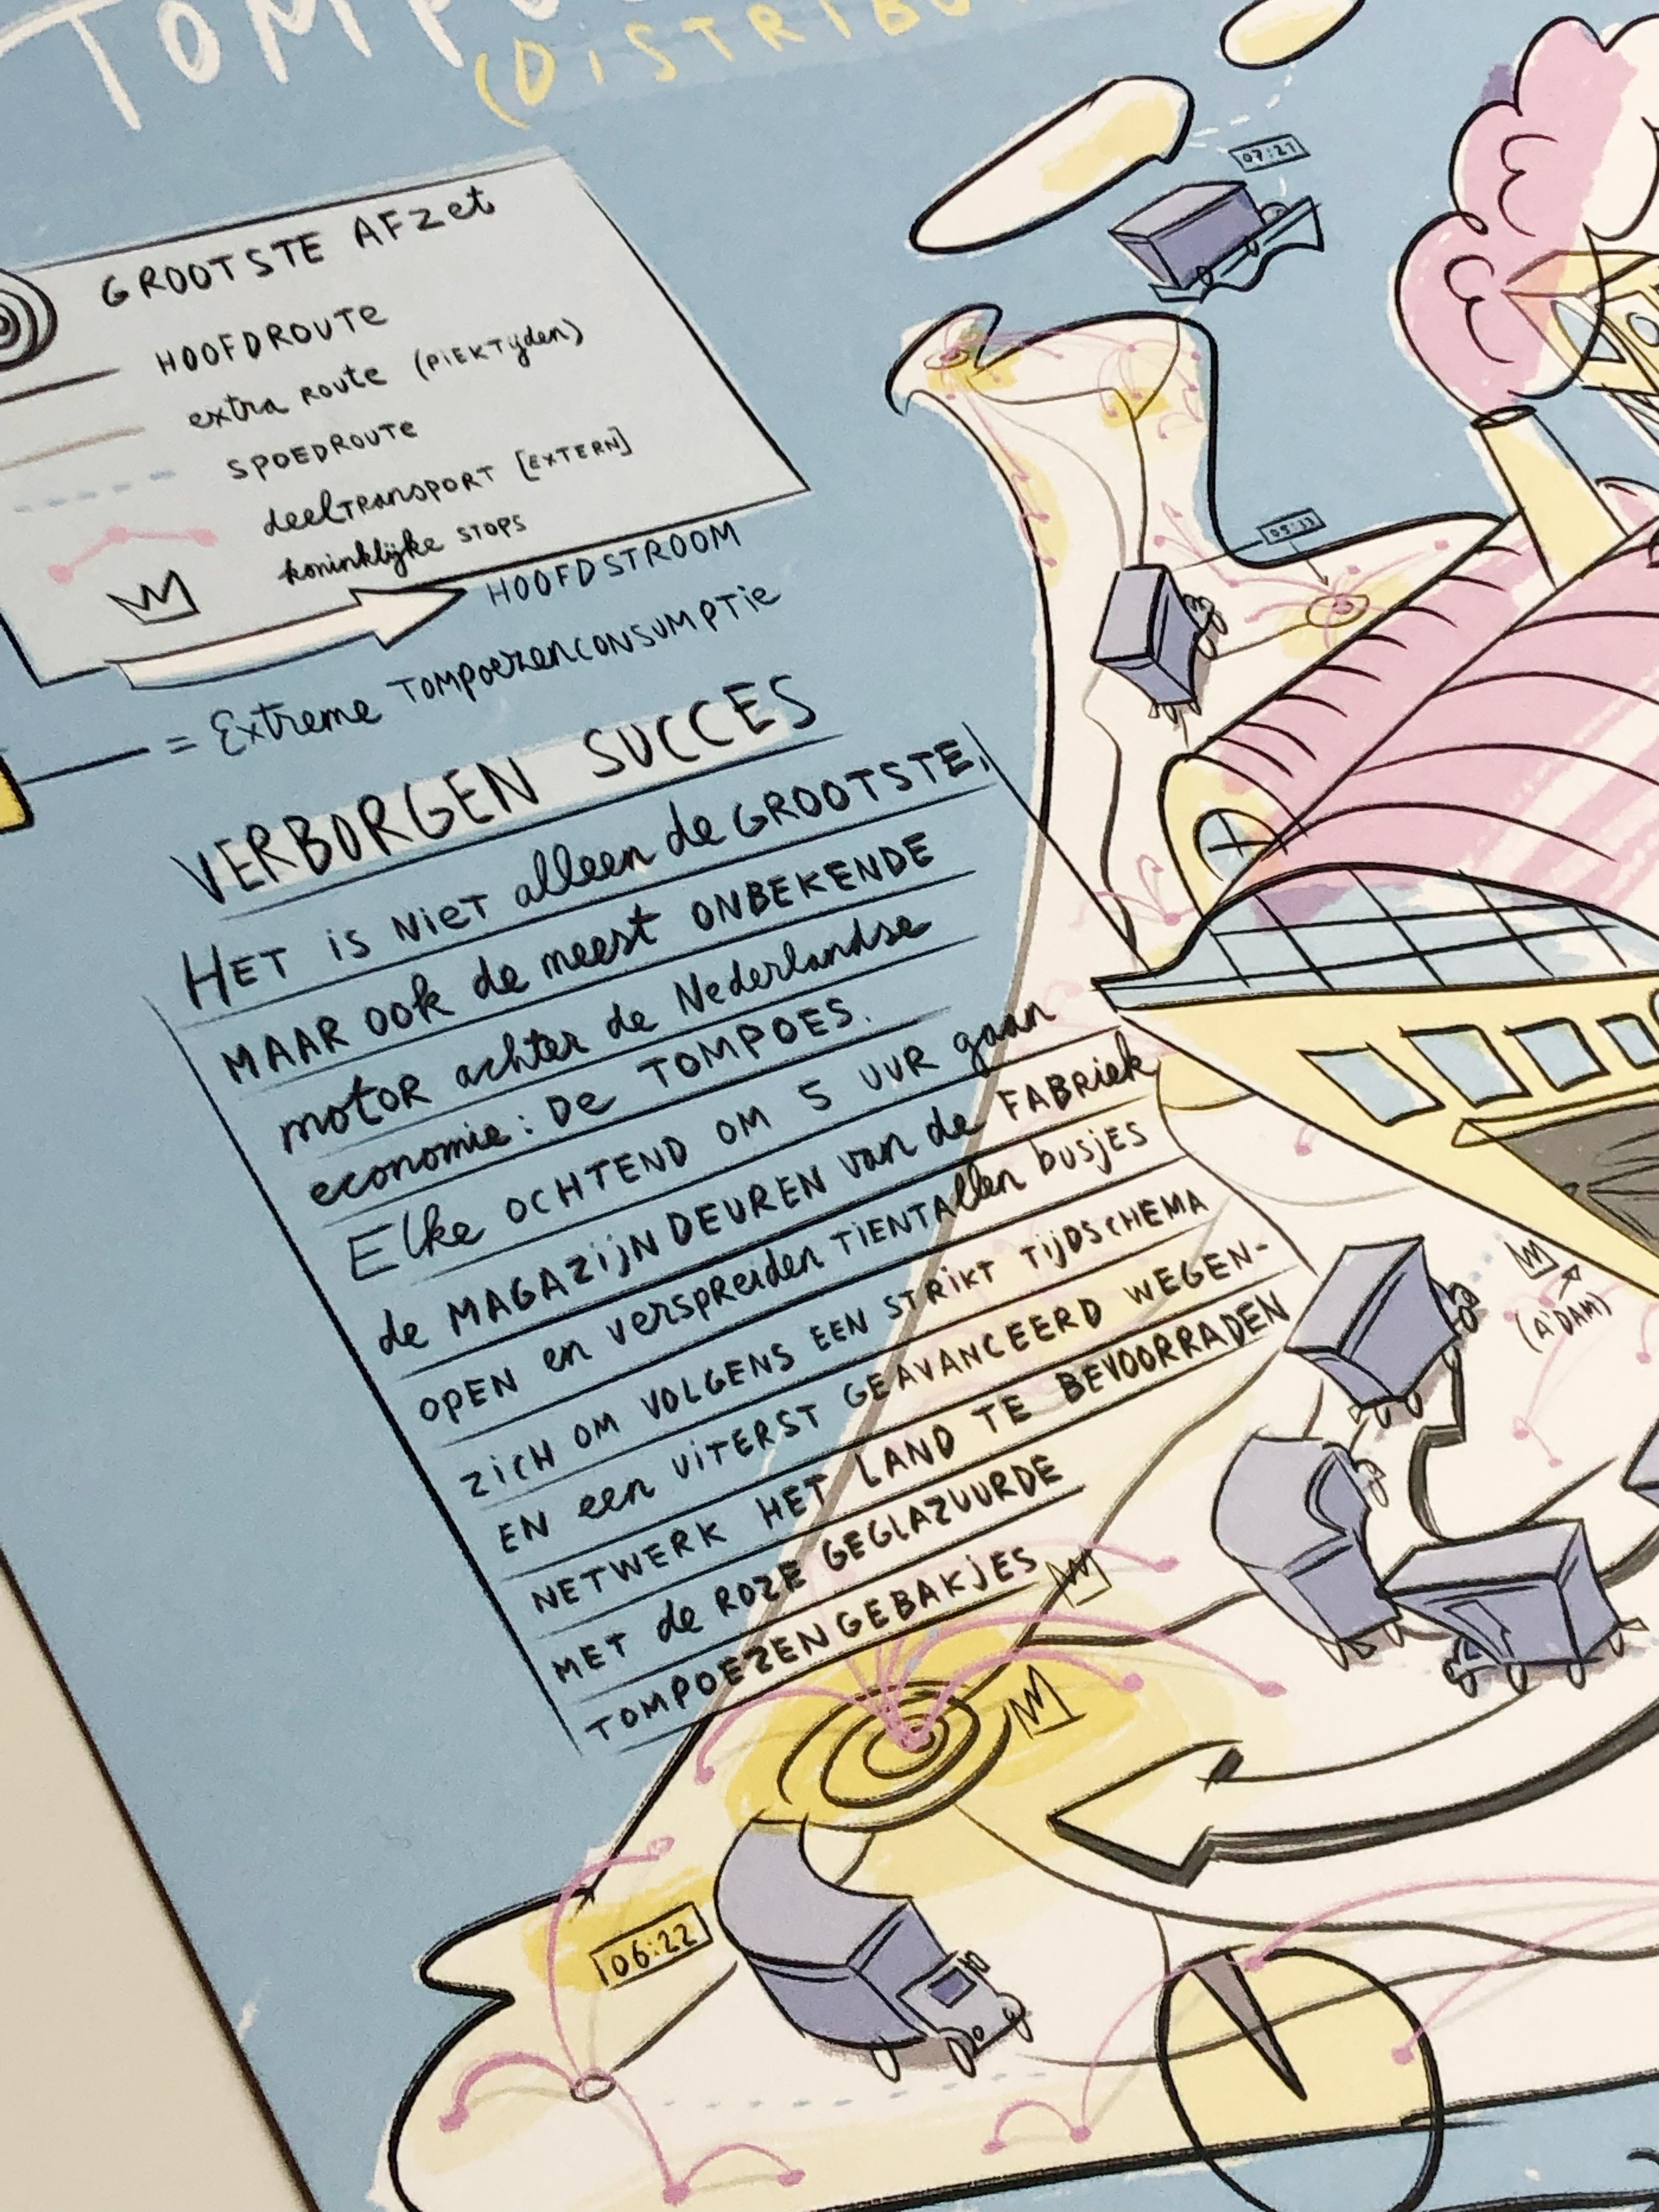 GROOTSTE AFZET
HOOFDROUTE
extra ROUTE (PIEKTijden)
SPOEDROUTE
deelTRANSPORT [EXTERN]
koninklijke STOPS
HOOFDSTROOM
= Extreme TOMPOEZENCONSUMPTIE
VERBORGEN SUCCES
HET is NIET alleen de GROOTSTE,
MAAR OOK de meest ONBEKENDE
motor achter de Nederlandse
economie: De TOMPOES.
Elke OCHTEND OM 5 UUR gaan
de MAGAZIJNDEUREN van de FABRIEK
OPEN en verspreiden TIENTALLEN busjes
ZICH OM VOLGENS EEN STRIKT TIJDSCHEMA
EN een UITERST GEAVANCEERD WEGEN-
NETWERK HET LAND TE BEVOORRADEN
MET de ROZE GEGLAZUURDE
TOMPOEZENGEBAKJES
07:21
(A'DAM)
06:22